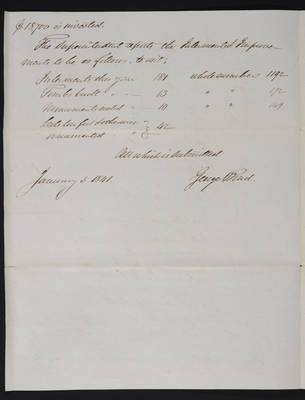 $18,700 is invested.
The Superintendent reports the Interments & Improve-
ments to be as follows, to wit:
Interments this year 181 whole number 1192
Tombs built " — 13 " " 172
Monuments erected " 10 " " 149
Lots
ornamented " 42
All which is submitted
January 5 1841. George